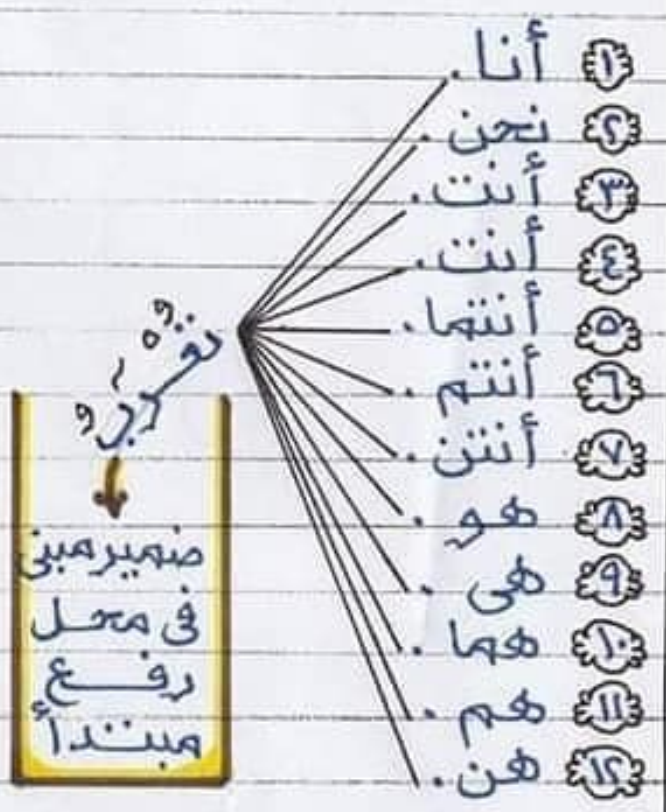 ١ أنا
٢ نحن
٣ أنت
٤ أنت
٥ أنتما
٦ أنتم
٧ أنتن
٨ هو
٩ هى
١٠ هما
١١ هم
١٢ هن
تُعْرَبُ
ضمير مبنى
فى محل
رفع
مبتدأ